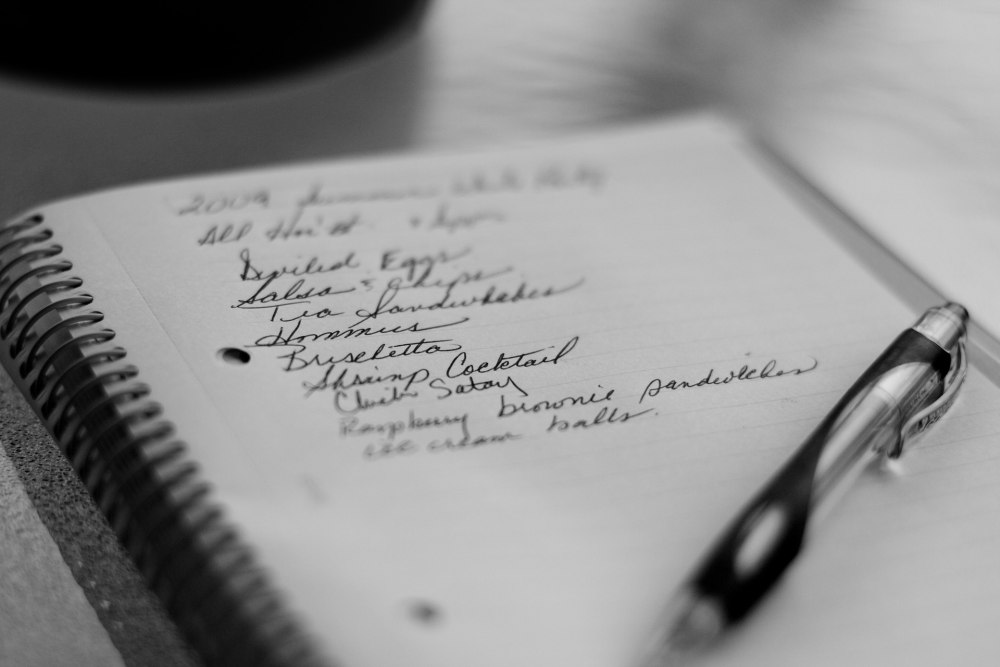 2009 Summer White Party
All
Deviled Eggs
Salsa & Chips
Tea Sandwhiches
Hommus
Bruschetta
Shrimp Cocktail
Satay
Raspberry brownie sandwiches
ice cream balls